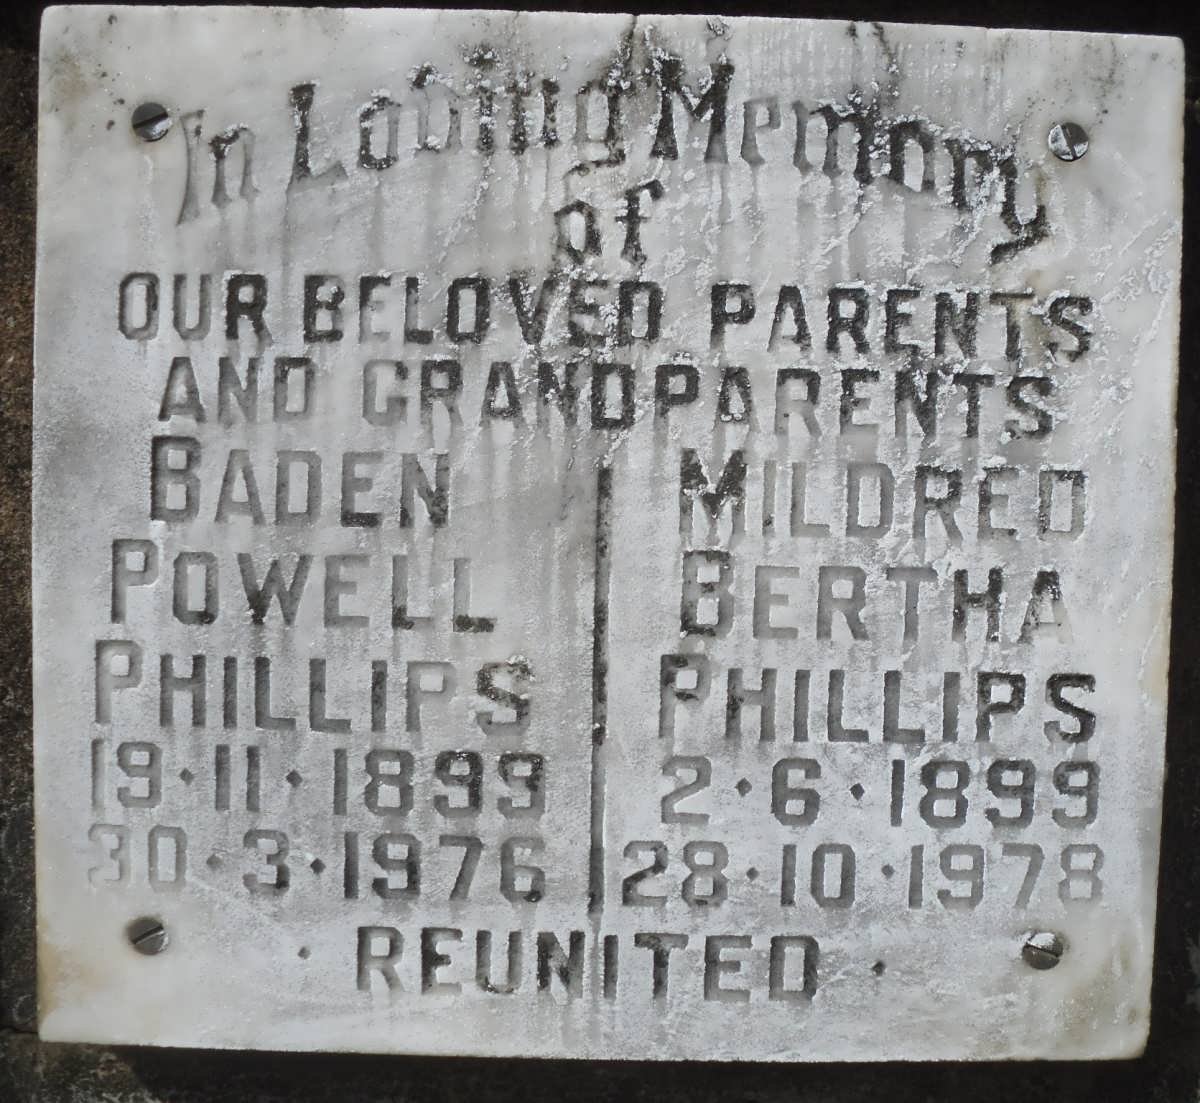 In Loving Memory
of
OUR BELOVED PARENTS
AND GRANDPARENTS
BADEN
POWELL
PHILLIPS
19·11·1899
30·3·1976
MILDRED
BERTHA
PHILLIPS
2·6·1899
28·10·1978
· REUNITED ·